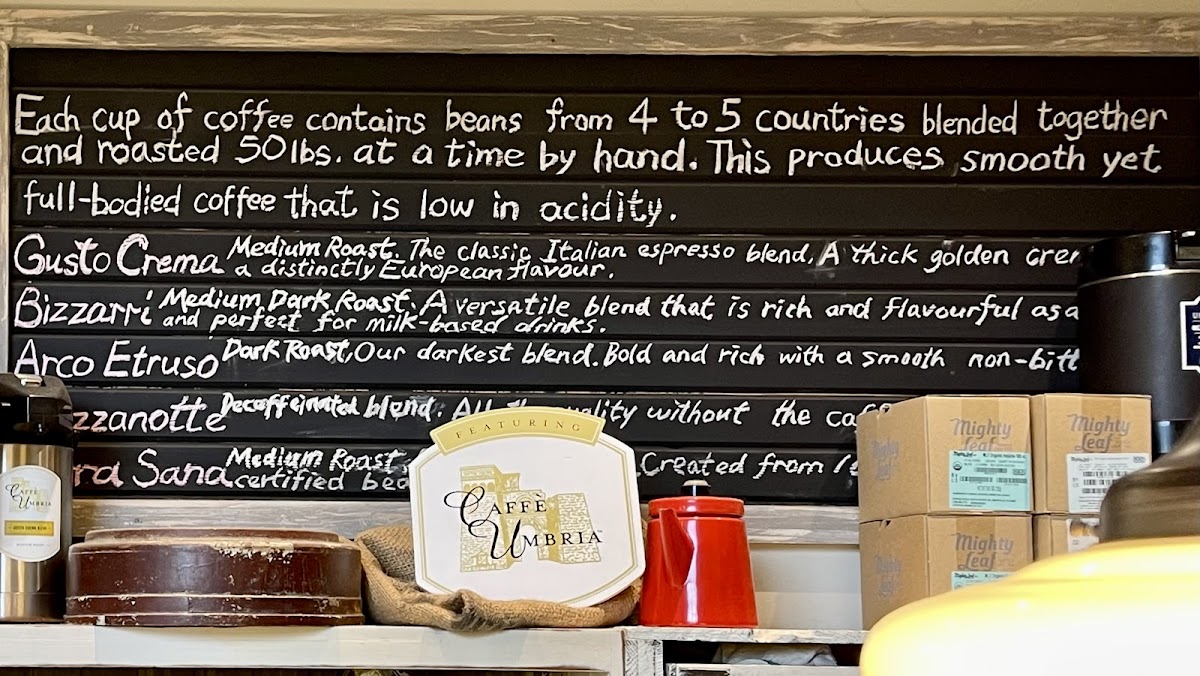 Each cup of coffee contains beans from 4 to 5 countries blended together
and roasted 50 lbs. at a time by hand. This produces smooth yet
full-bodied coffee that is low in acidity.
Gusto Crema Medium Roast. The classic Italian espresso blend. A thick golden crem
a distinctly European flavour.
Bizzarri Medium Dark Roast. A versatile blend that is rich and flavourful as a
and perfect for milk-based drinks.
Arco Etruso Dark Roast. Our darkest blend. Bold and rich with a smooth non-bitt
zzanotte Decaffeinated blend. All the quality without the caf
ra Sana Medium Roast Created from
certified bea
FEATURING
CAFFÈ
UMBRIA™
CAFFÈ
UMBRIA
Mighty
Leaf
Mighty
Leaf
Mighty
Leaf